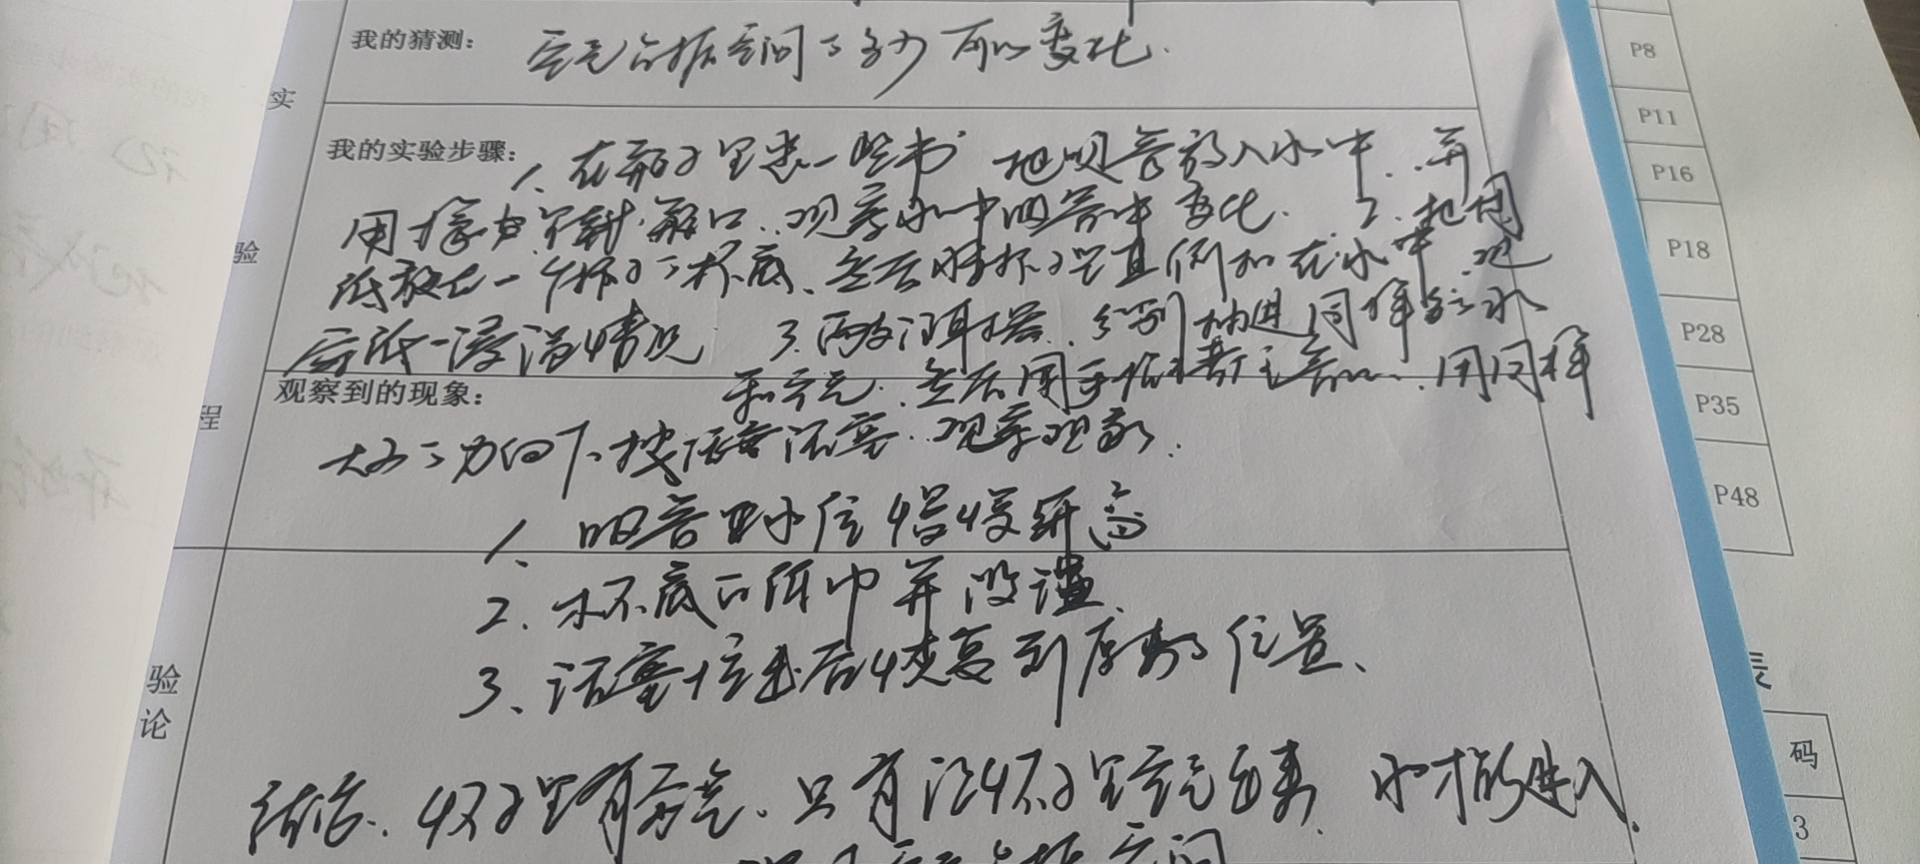 我的猜测： 空气占据空间了多少 可以变化.
实
我的实验步骤：
1、在瓶子里装一些水 把吸管放入水中、并
用橡皮泥封瓶口、观察水中吸管中变化. 2、把团
验
纸放在一个杯子了杯底、然后将杯子竖直倒扣在水中 观
察纸一浸湿情况 3、两支注射器、分别抽进同样多水
观察到的现象：
和空气、然后用手堵住管口、用同样
程
大小了力向下按活塞、观察现象.
1、吸管中水位慢慢升高
2、杯底的纸巾并没湿
3、活塞 后恢复到原来了位置、
验
论
结论、杯子里有空气、只有让杯子里空气出来、水才能进入.
空气占据空间
P8
P11
P16
P18
P28
P35
P48
表
码
3